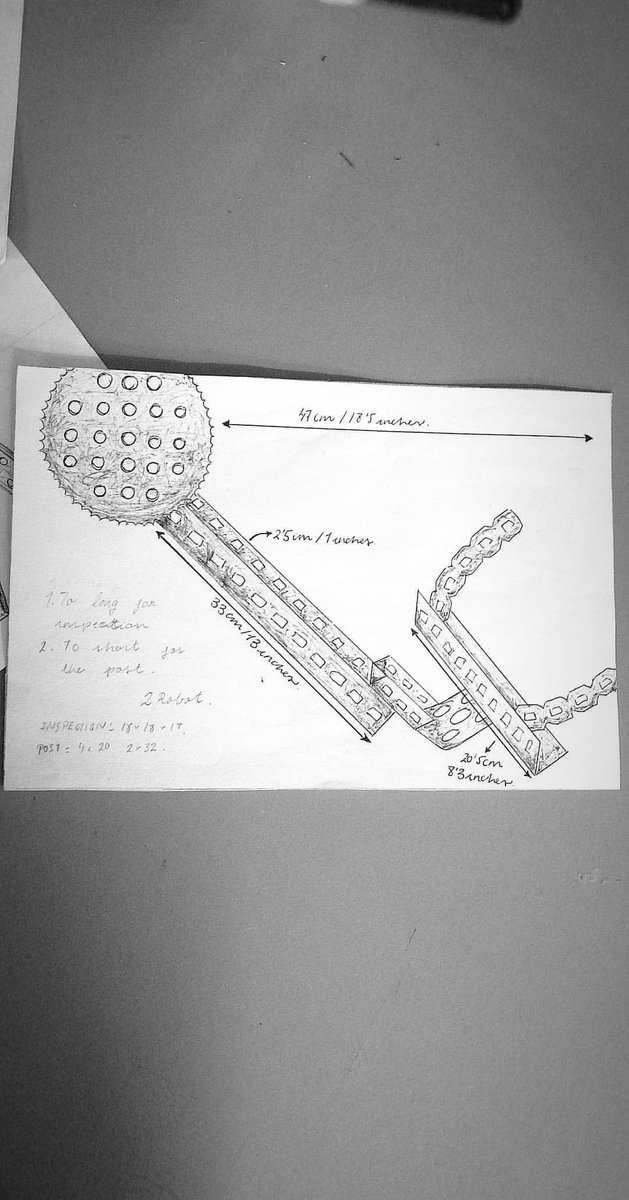 47cm / 18'5 inches.
2'5cm / 1 inches
33cm / 13 inches.
1. To long for
inspection
2. To short for
the post.
2 Robot.
INSPECTION = 18 × 18 × 18.
POST = 4 × 20 2 × 32.
20'5cm
8'3 inches.